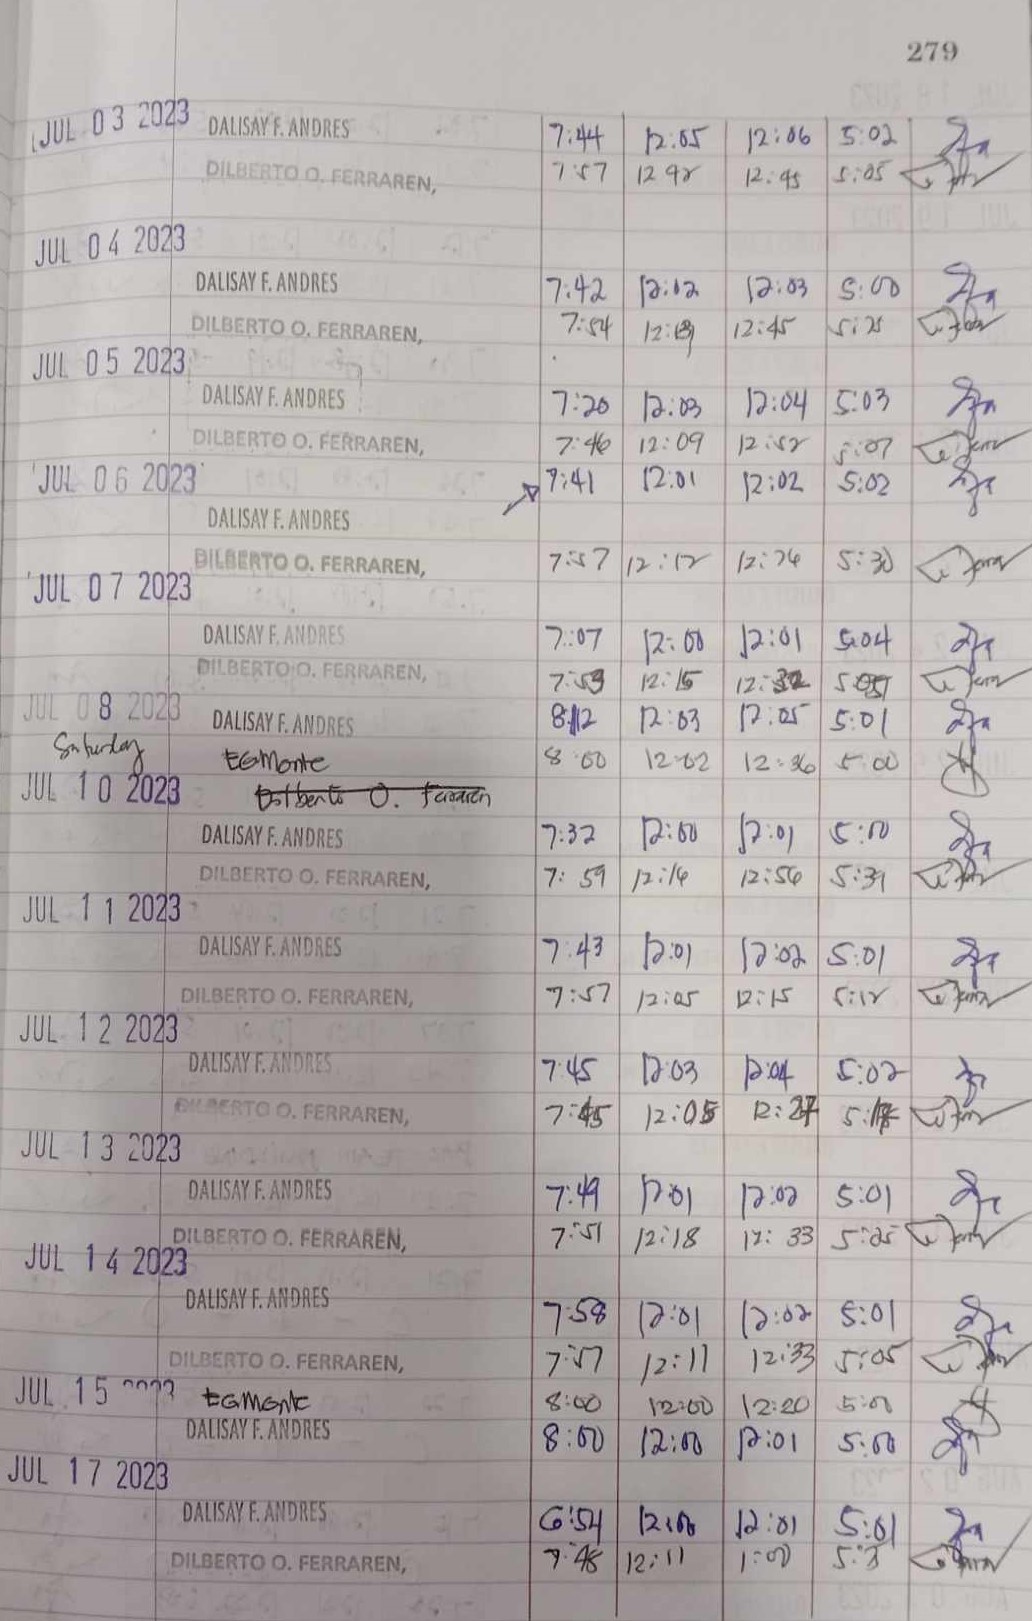 279
JUL 03 2023 DALISAY F. ANDRES 7:44 12:05 12:06 5:02
DILBERTO O. FERRAREN, 7:57 12 42 12:45 5:05
JUL 04 2023
DALISAY F. ANDRES 7:42 12:02 12:03 5:00
DILBERTO O. FERRAREN, 7:54 12:45 5:25
JUL 05 2023
DALISAY F. ANDRES 7:20 12:03 12:04 5:03
DILBERTO O. FERRAREN, 7:46 12:09 12:52 5:07
JUL 06 2023 7:41 12:01 12:02 5:02
DALISAY F. ANDRES
DILBERTO O. FERRAREN, 7:57 12:12 5:30
JUL 07 2023
DALISAY F. ANDRES 7:07 12:00 12:01 5:04
DILBERTO O. FERRAREN, 7:53 12:15 12:32
JUL 08 2023 DALISAY F. ANDRES 8:12 12:03 12:05 5:01
Saturday EGMonte 8:00 12:02 12:36 5:00
JUL 10 2023 Dilberto O. Ferraren
DALISAY F. ANDRES 7:32 12:00 12:01 5:00
DILBERTO O. FERRAREN, 7:59 12:14 12:56 5:39
JUL 11 2023
DALISAY F. ANDRES 7:43 12:01 12:02 5:01
DILBERTO O. FERRAREN, 7:57 12:05 12:15 5:12
JUL 12 2023
DALISAY F. ANDRES 7:45 12:03 12:04 5:02
DILBERTO O. FERRAREN, 7:45 12:05 12:27
JUL 13 2023
DALISAY F. ANDRES 7:49 12:01 12:02 5:01
DILBERTO O. FERRAREN, 7:51 12:18 12:33 5:25
JUL 14 2023
DALISAY F. ANDRES 7:58 12:01 12:02 5:01
DILBERTO O. FERRAREN, 7:57 12:11 12:33 5:05
JUL 15 2023 EGMonte 8:00 12:00 12:20 5:00
DALISAY F. ANDRES 8:00 12:00 12:01 5:00
JUL 17 2023
DALISAY F. ANDRES 6:54 12:00 12:01 5:01
DILBERTO O. FERRAREN, 7:48 12:11 1:00